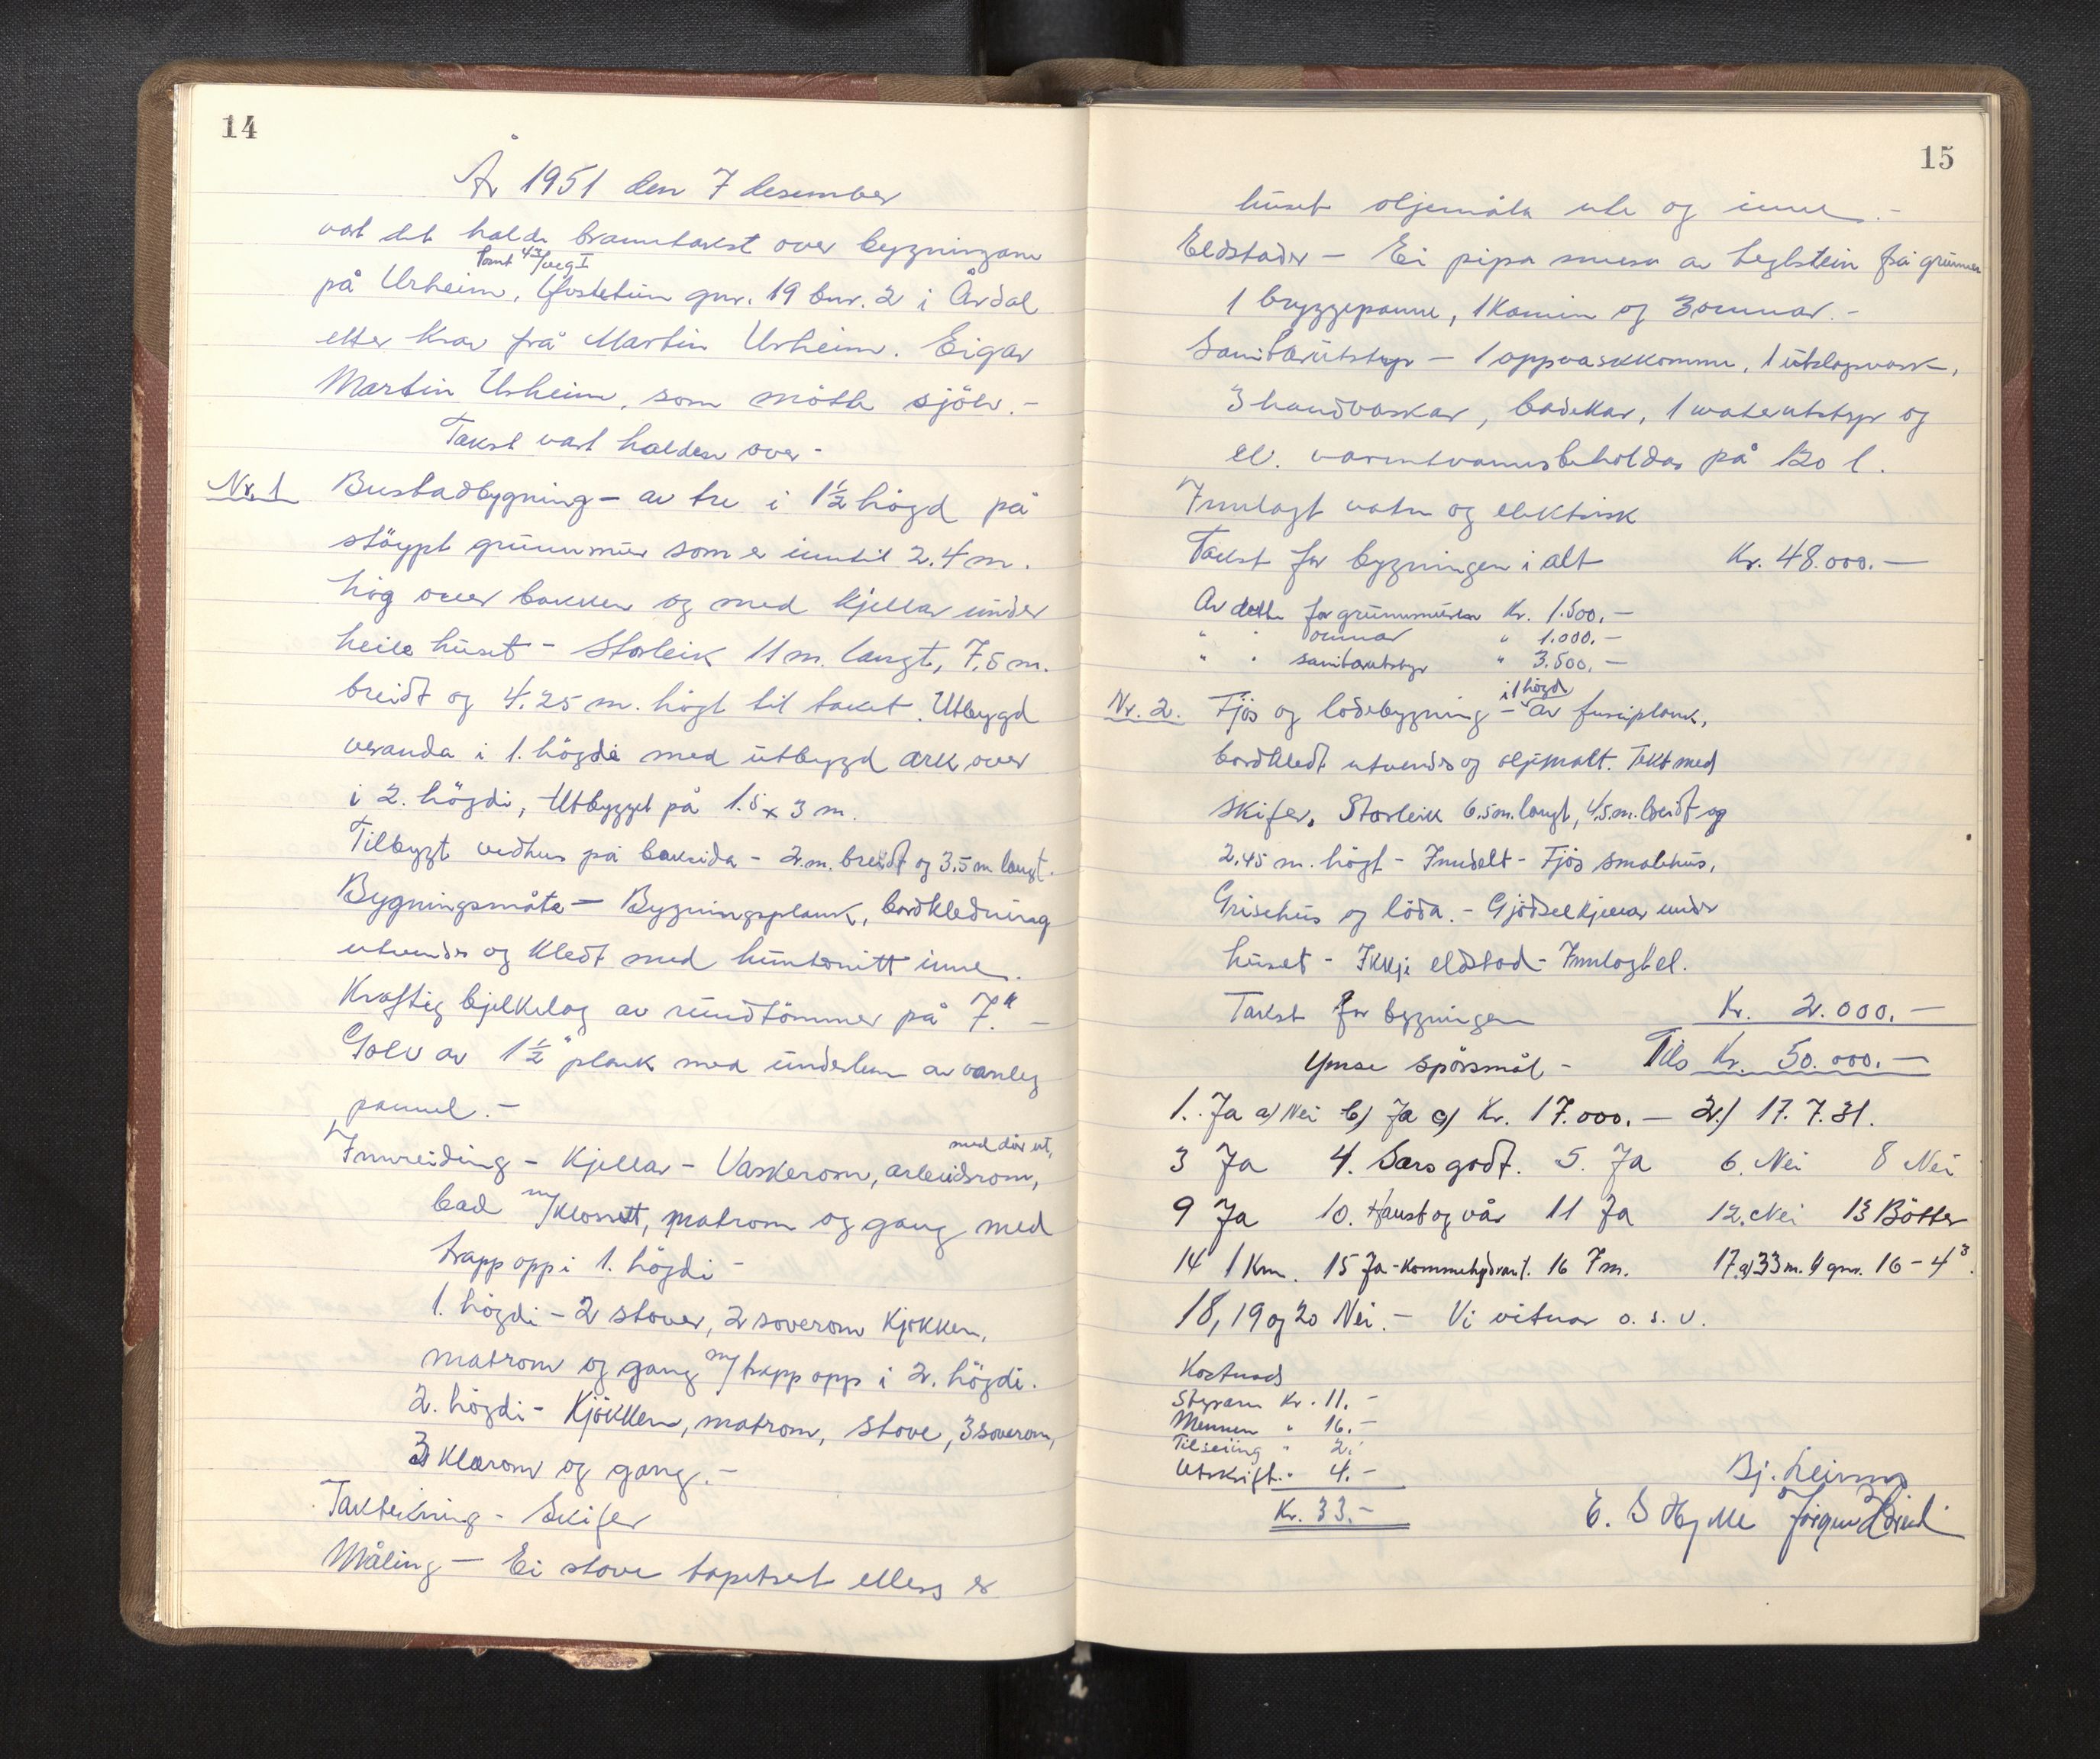 14
År 1951 den 7 desember
vart det halde branntakst over bygningane
Tomt 43/veg I
på Urheim, gnr. 19 bnr. 2 i Årdal
etter krav frå Martin Urheim. Eigar
Martin Urheim, som møtte sjölv.-
Takst vart halden over-
Nr. 1 Bustadbygning - av tre i 1½ högd på
stöypt grunnmur som er inntil 2.4 m.
hög over bakken og med kjellar under
heile huset - Storleik 11 m. langt, 7,5 m.
breidt og 4.25 m. högt til taket. Utbygd
veranda i 1. högdi med utbygd ark over
i 2. högdi, Utbygget på 1.5 x 3 m.
Tilbygt vedhus på baksida - 2.m. breidt og 3.5 m langt.
Bygningsmåte - Bygningsplank, bordkledning
utvendes og kledt med huntonitt inne.
Kraftig bjelkelag av rundtömmer på 7." -
Golv av 1½" plank med underlem av vanleg
pannel.-
med dör ut,
Innreiding - Kjellar - Vaskerom, arbeidsrom,
bad m/klosett, matrom og gang med
trapp opp i 1. högdi -
1. högdi - 2 stover, 2 soverom kjøkken,
matrom og gang m/trapp opp i 2. högdi.
2. högdi - Kjökken, matrom, stove, 3 soverom,
3 klærom og gang.-
Taktekning - Skifer
Måling - Ei stove tapetsert ellers er
15
huset oljemåla ute og inne.-
Eldstader - Ei pipa mura av teglstein frå grunnen
1 bryggepanne, 1 kamin og 3 omnar.-
Sanitærutstyr - 1 oppvaskkomme, 1 utslagsvask,
3 handvaskar, badekar, 1 waterutstyr og
el. varmtvannsbeholdar på 120 l.
Innlagt vatn og elektrisk
Takst for bygningen i alt Kr. 48.000.-
Av dette for grunnmuren Kr. 1.500.-
" " omnar " 1.000.-
" " sanitærutstyr " 3.500.-
i 1 högd
Nr. 2. Fjös og lödebygning - av furuplank,
bordkledt utvendes og oljemalt. Tekt med
skifer. Storleik 6.5 m. langt, 4.5 m. breidt og
2.45 m. högt - Inndelt - Fjös smalehus,
Grisehus og löda. - Gjödselkjellar under
huset - Ikkje eldstad - Innlagt el.
Takst for bygningen Kr. 2.000.-
Ymse spörsmål - Tils Kr. 50.000.-
1. Ja a) Nei b) Ja c) Kr. 17.000.- 2.) 17.7.31.
3 Ja 4. Særs godt. 5. Ja 6. Nei 8 Nei
9 Ja 10. Haust og vår 11 Ja 12. Nei 13 Bötter
14 1 Km. 15 Ja - 16 7m. 17.a) 33 m. 16 - 4³.
18, 19 og 20 Nei.- Vi vitnar o. s. v.
Kostnad
Styraren Kr. 11.-
Mennen " 16.-
Tilseiing " 2.-
Utskrift " 4.-
Kr. 33.-
Bj.
E. S Jørgen